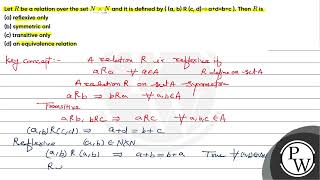 Let R be a relation over the set N × N and it is defined by ( (a, b) R (c, d)⇒a+d=b+c ). Then R is
(a) reflexive only
(b) symmetric onl
(c) transitive only
(d) an equivalence relation
Key concept:- A relation R is reflexive if
aRa ∀ a∈A R define on set A
A relation R on set A symmetric
aRb ⇒ bRa ∀ a,b∈A
Transitive
aRb, bRc ⇒ aRc ∀ a,b,c∈A
(a,b)R(c,d) ⇒ a+d = b+c
Reflexive (a,b)∈N×N
(a,b) R (a,b) ⇒ a+b = b+a True ∀
R
PW